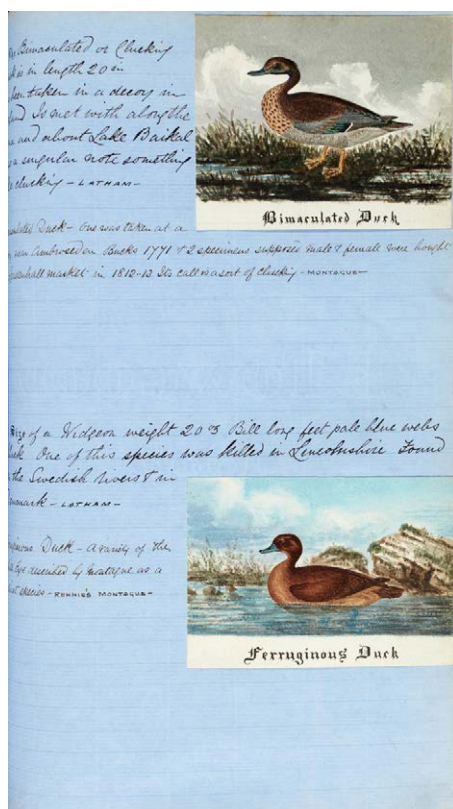 Bimaculated or Clucking
is in length 20 in
been taken in a decoy in
Is met with along the
and about Lake Baikal
a singular note something
clucking - LATHAM -
Bimaculated Duck
Duck - One was taken at a
Bucks 1771 & 2 specimens supposed male & female were bought
market in 1812-13 Its call is a sort of clucking - MONTAGUE -
Size of a Widgeon weight 20 oz Bill long feet pale blue webs
One of this species was killed in Lincolnshire Found
the Swedish rivers & in
- LATHAM -
Duck - A variety of the
described by Montague as a
species - RENNIE'S MONTAGUE -
Ferruginous Duck